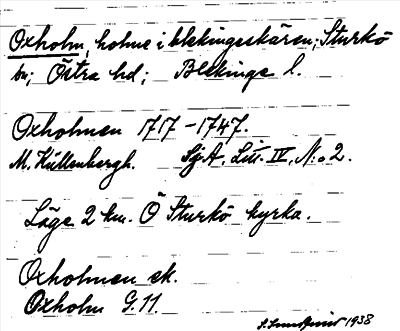 Oxholm, holme i blekingeskären; Sturkö
sn; Östra hd; Blekinge l.
Oxholmen 1717-1747.
M. Kullenbergh. Sj.A. Litt. IV, N:o 2.
Läge 2 km. Ö Sturkö kyrka.
Oxholmen ek.
Oxholm G.11.
1938